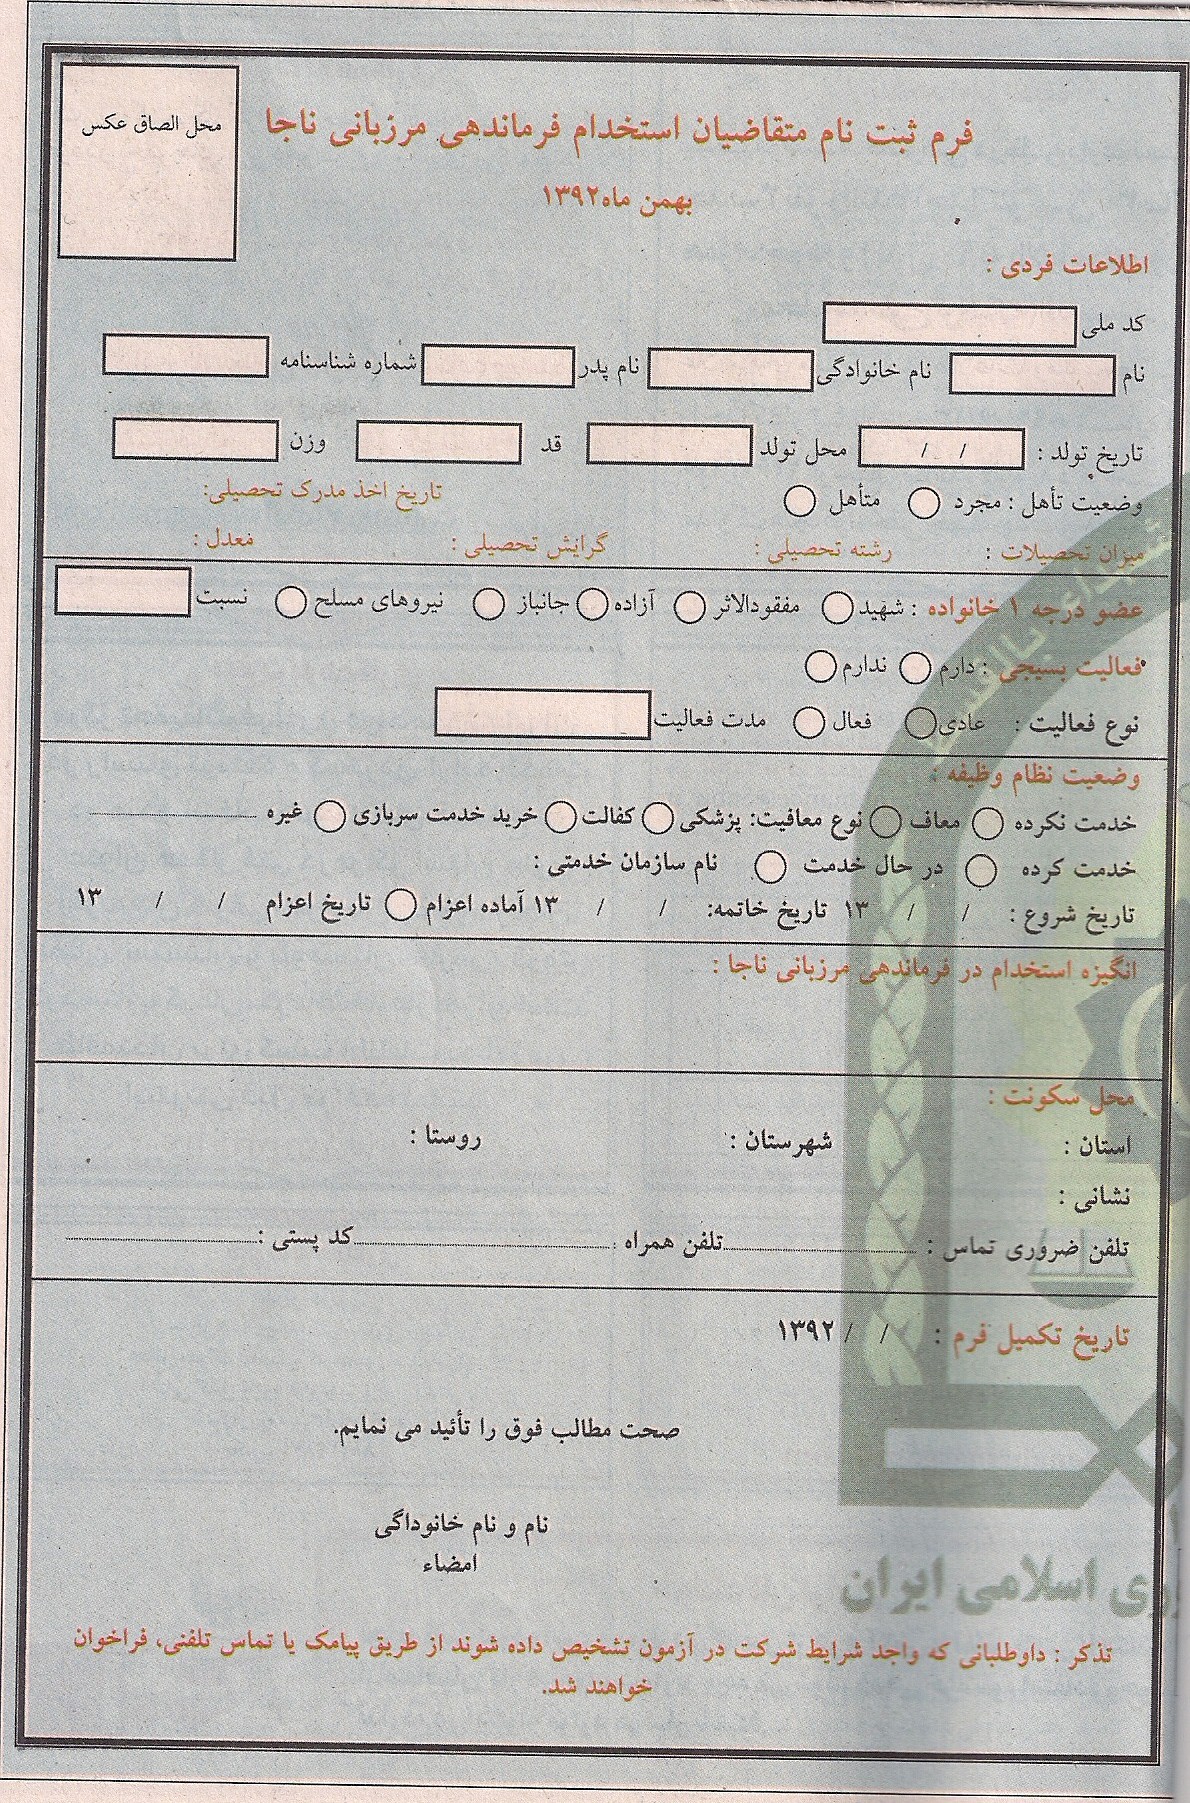 محل الصاق عکس
فرم ثبت نام متقاضیان استخدام فرماندهی مرزبانی ناجا
بهمن ماه ۱۳۹۲
اطلاعات فردی :
کد ملی
نام نام خانوادگی نام پدر شماره شناسنامه
تاریخ تولد : / / محل تولد قد وزن
وضعیت تأهل : مجرد متأهل تاریخ اخذ مدرک تحصیلی:
میزان تحصیلات : رشته تحصیلی : گرایش تحصیلی : معدل :
عضو درجه ۱ خانواده : شهید مفقودالاثر آزاده جانباز نیروهای مسلح نسبت
فعالیت بسیجی : دارم ندارم
نوع فعالیت : عادی فعال مدت فعالیت
وضعیت نظام وظیفه :
خدمت نکرده معاف نوع معافیت: پزشکی کفالت خرید خدمت سربازی غیره
خدمت کرده در حال خدمت نام سازمان خدمتی :
تاریخ شروع : / / ۱۳ تاریخ خاتمه: / / ۱۳ آماده اعزام تاریخ اعزام / / ۱۳
انگیزه استخدام در فرماندهی مرزبانی ناجا :
محل سکونت :
استان : شهرستان : روستا :
نشانی :
تلفن ضروری تماس : تلفن همراه : کد پستی :
تاریخ تکمیل فرم : / / ۱۳۹۲
صحت مطالب فوق را تأئید می نمایم.
نام و نام خانوداگی
امضاء
وری اسلامی ایران
تذکر : داوطلبانی که واجد شرایط شرکت در آزمون تشخیص داده شوند از طریق پیامک یا تماس تلفنی، فراخوان
خواهند شد.